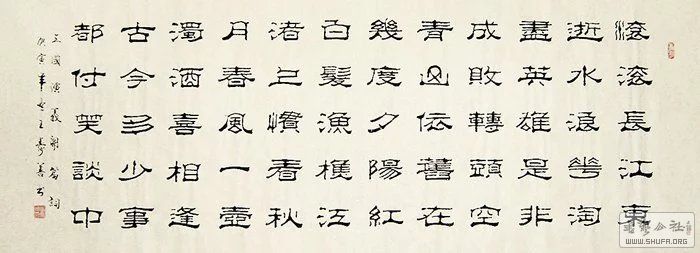 滾滾長江東
逝水浪花淘
盡英雄是非
成敗轉頭空
青山依舊在
幾度夕陽紅
白髮漁樵江
渚上慣看秋
月春風一壺
濁酒喜相逢
古今多少事
都付笑談中
三國演義開篇詞
WWW.SHUFA.ORG